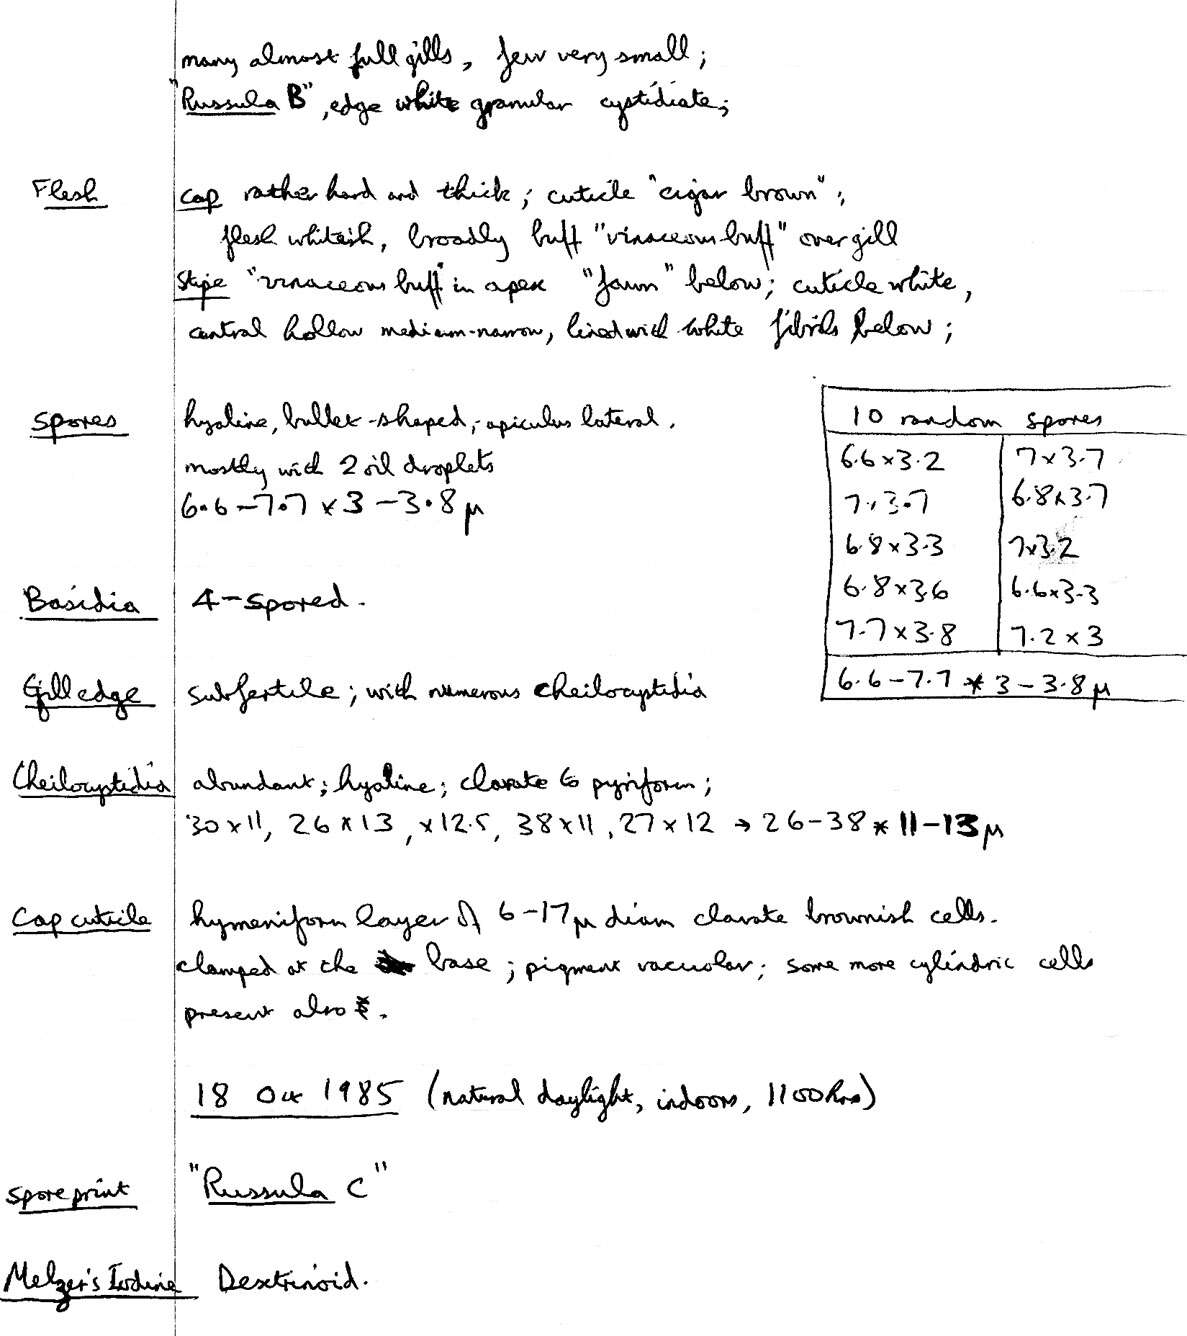 many almost full gills, few very small;
"Russula B", edge white granular cystidiate;
Flesh cap rather hard and thick; cuticle "cigar brown";
flesh whitish, broadly buff "vinaceous buff" over gill
Stipe "vinaceous buff" in apex "fawn" below; cuticle white,
central hollow medium-narrow, lined with white fibrils below;
Spores hyaline, bullet-shaped, apiculus lateral.
mostly with 2 oil droplets
6.6-7.7 x 3-3.8 μ
10 random spores
6.6x3.2 7x3.7
7x3.7 6.8x3.7
6.8x3.3 7x3.2
6.8x3.6 6.6x3.3
7.7x3.8 7.2x3
6.6-7.7 x 3-3.8μ
Basidia 4-spored.
Gill edge subfertile; with numerous cheilocystidia
Cheilocystidia abundant; hyaline; clavate to pyriform;
30x11, 26x13, x12.5, 38x11, 27x12 → 26-38 x 11-13μ
Cap cuticle hymeniform layer of 6-17μ diam clavate brownish cells.
clamped at the base; pigment vacuolar; some more cylindric cells
present also.
18 Oct 1985 (natural daylight, indoors, 1100hrs)
Spore print "Russula C"
Melzer's Iodine Dextrinoid.